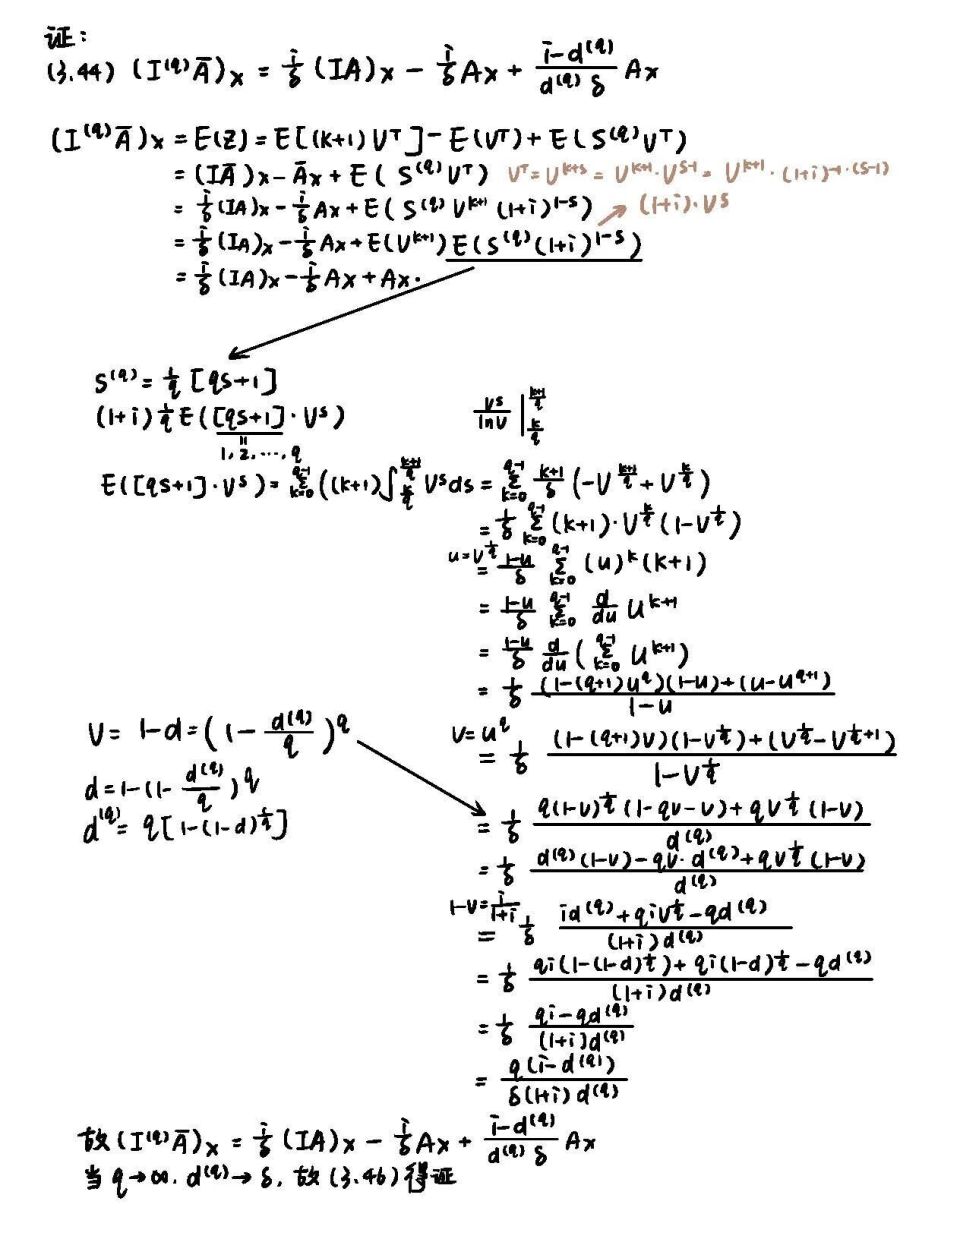 证:
(3.44) (I^{(q)}Ā)_x = i/δ (IA)_x - i/δ A_x + (i-d^{(q)})/(d^{(q)} δ) A_x
(I^{(q)}Ā)_x = E(Z) = E[(k+1) V^T] - E(V^T) + E(S^{(q)} V^T)
= (IĀ)_x - Ā_x + E(S^{(q)} V^T) V^T = V^{k+s} = V^{k+1}·V^{s-1} = V^{k+1}·(1+i)^{-1·(s-1)}
= i/δ (IA)_x - i/δ A_x + E(S^{(q)} V^{k+1} (1+i)^{1-s}) (1+i)·V^s
= i/δ (IA)_x - i/δ A_x + E(V^{k+1}) E(S^{(q)} (1+i)^{1-s})
= i/δ (IA)_x - i/δ A_x + A_x·
S^{(q)} = 1/q [qs+1]
(1+i) 1/q E([qs+1]·V^s) V^s/lnV |_{k/q}^{(k+1)/q}
= 1, 2, ..., q
E([qs+1]·V^s) = Σ_{k=0}^{q-1} ((k+1) ∫_{k/q}^{(k+1)/q} V^s ds = Σ_{k=0}^{q-1} (k+1)/δ (-V^{(k+1)/q} + V^{k/q})
= 1/δ Σ_{k=0}^{q-1} (k+1)·V^{k/q} (1-V^{1/q})
u=V^{1/q} = (1-u)/δ Σ_{k=0}^{q-1} (u)^k (k+1)
= (1-u)/δ Σ_{k=0}^{q-1} d/du u^{k+1}
= (1-u)/δ d/du (Σ_{k=0}^{q-1} u^{k+1})
= 1/δ ((1-(q+1)u^q)(1-u)+(u-u^{q+1}))/(1-u)
V = 1-d = (1 - d^{(q)}/q)^q V=u^q = 1/δ ((1-(q+1)V)(1-V^{1/q})+(V^{1/q}-V^{1/q+1}))/(1-V^{1/q})
d = 1-(1- d^{(q)}/q)^q
d^{(q)} = q[1-(1-d)^{1/q}] = 1/δ (q(1-V)^{1/q} (1-qV-V)+qV^{1/q} (1-V))/d^{(q)}
= 1/δ (d^{(q)} (1-V)-qV·d^{(q)}+qV^{1/q} (1-V))/d^{(q)}
1-V=i/(1+i) = 1/δ (id^{(q)}+qiV^{1/q}-qd^{(q)})/((1+i)d^{(q)})
= 1/δ (qi(1-(1-d)^{1/q})+qi(1-d)^{1/q}-qd^{(q)})/((1+i)d^{(q)})
= 1/δ (qi-qd^{(q)})/((1+i)d^{(q)})
= q(i-d^{(q)})/(δ(1+i)d^{(q)})
故 (I^{(q)}Ā)_x = i/δ (IA)_x - i/δ A_x + (i-d^{(q)})/(d^{(q)} δ) A_x
当 q→∞. d^{(q)}→δ. 故 (3.46) 得证